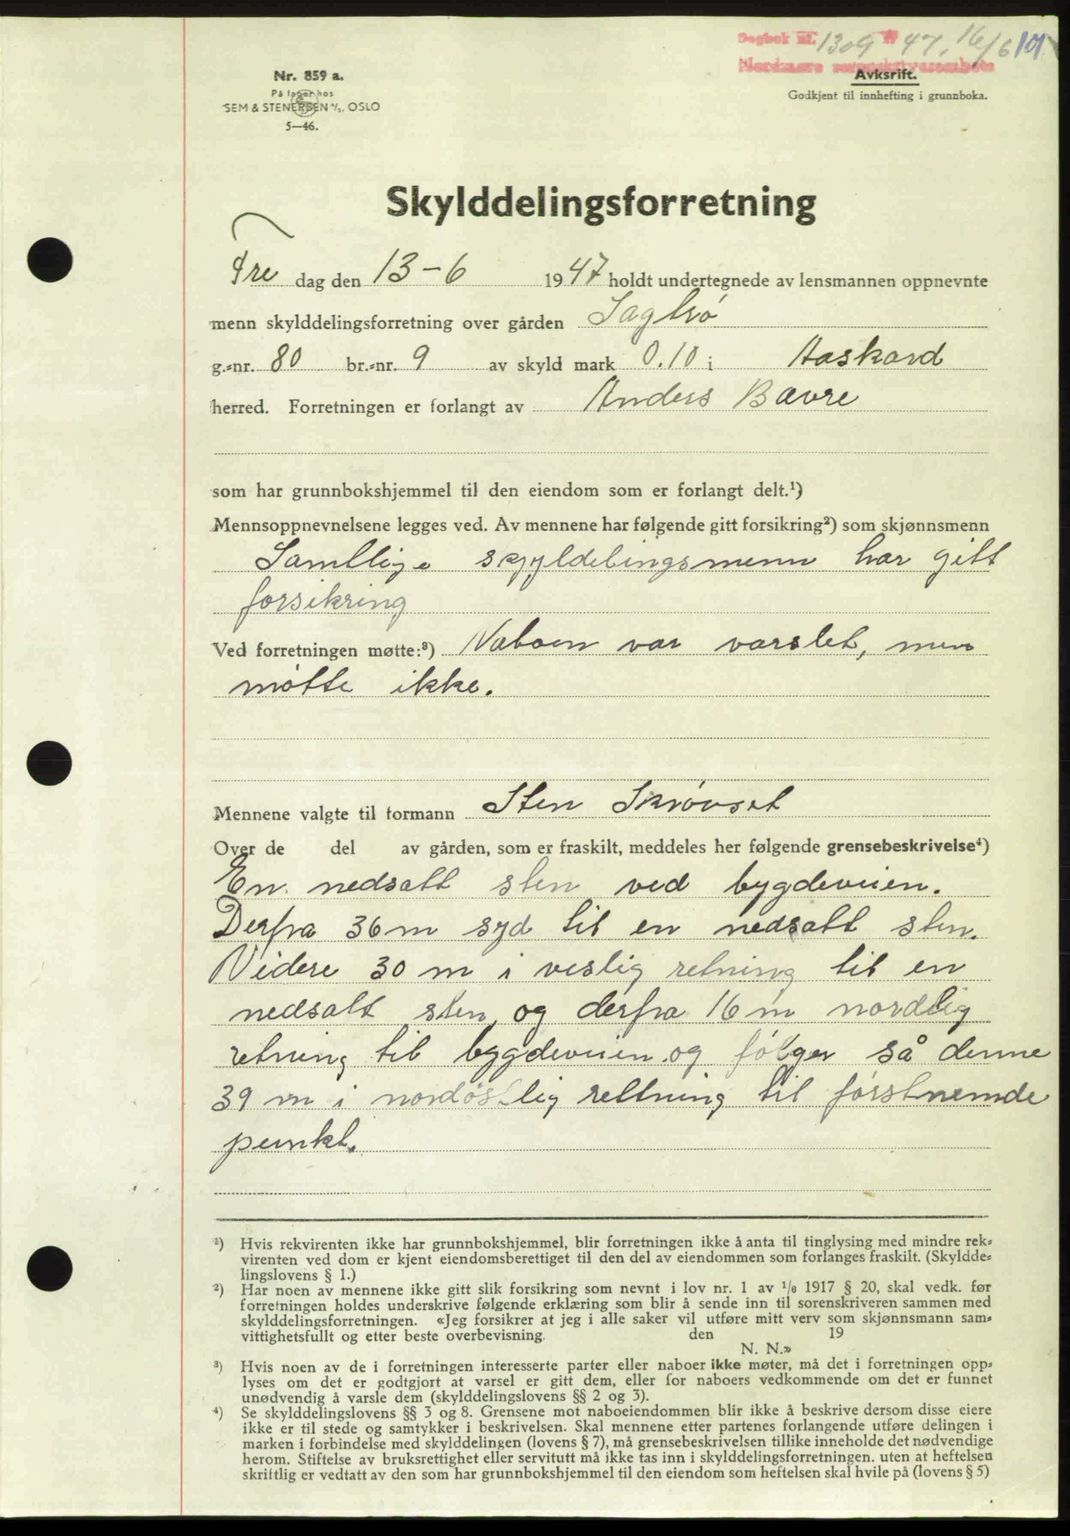 Dagbok nr. 1309 19 47, 16/6 101
Nordmøre sorenskriverembete
Nr. 859 a.
På lager hos
SEM & STENERSEN A/S, OSLO
5—46.
Avkskrift.
Godkjent til innhefting i grunnboka.
Skylddelingsforretning
Fre dag den 13-6 1947 holdt undertegnede av lensmannen oppnevnte
menn skylddelingsforretning over gården Sagbrø
g.=nr. 80 br.=nr. 9 av skyld mark 0.10 i Aaskard
herred. Forretningen er forlangt av Anders Bævre
som har grunnbokshjemmel til den eiendom som er forlangt delt.¹)
Mennsoppnevnelsene legges ved. Av mennene har følgende gitt forsikring²) som skjønnsmenn
Samtlige skyldelingsmenn har gitt
forsikring
Ved forretningen møtte:³) Naboen var varslet, men
møtte ikke.
Mennene valgte til formann Sten Skrøvset
Over de del av gården, som er fraskilt, meddeles her følgende grensebeskrivelse⁴)
En nedsatt sten ved bygdeveien.
Derfra 36 m syd til en nedsatt sten.
Videre 30 m i veslig retning til en
nedsatt sten, og derfra 16 m nordlig
retning til bygdeveien og følger så denne
39 m i nordøstlig rettning til førstnemde
punkt.
¹) Hvis rekvirenten ikke har grunnbokshjemmel, blir forretningen ikke å anta til tinglysing med mindre rek=
virenten ved dom er kjent eiendomsberettiget til den del av eiendommen som forlanges fraskilt. (Skyldde=
lingslovens § 1.)
²) Har noen av mennene ikke gitt slik forsikring som nevnt i lov nr. 1 av 1/6 1917 § 20, skal vedk. før
forretningen holdes underskrive følgende erklæring som blir å sende inn til sorenskriveren sammen med
skylddelingsforretningen. «Jeg forsikrer at jeg i alle saker vil utføre mitt verv som skjønnsmann sam=
vittighetsfullt og etter beste overbevisning. den 19
N. N.»
³) Hvis noen av de i forretningen interesserte parter eller naboer ikke møter, må det i forretningen opp=
lyses om det er godtgjort at varsel er gitt dem, eller for naboers vedkommende om det er funnet
unødvendig å varsle dem (skylddelingslovens §§ 2 og 3).
⁴) Se skylddelingslovens §§ 3 og 8. Grensene mot naboeiendommen blir ikke å beskrive dersom disse eiere
ikke er til stede og samtykker i beskrivelsen. Skal mennene etter partenes forlangende utføre delingen i
marken i forbindelse med skylddelingen (lovens § 7), må grensebeskrivelsen tillike inneholde det nødvendige
herom. Stiftelse av bruksrettighet eller servitutt må ikke tas inn i skylddelingsforretningen. uten at heftelsen
skriftlig er vedtatt av den som har grunnbokshjemmel til den eiendom som heftelsen skal hvile på (lovens § 5)